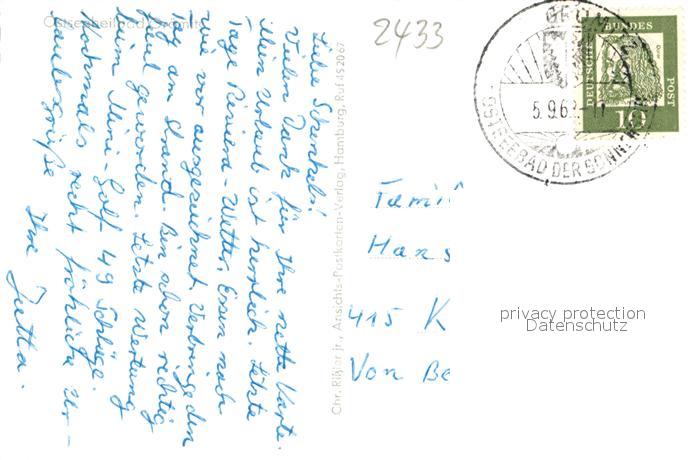 Ostseeheilbad Grömitz
Liebe Schinkels!
Vielen Dank für Ihre nette Karte.
Mein Urlaub ist herrlich. Letzte
Tage Riviera-Wetter, Essen nach
wie vor ausgezeichnet. Verbringe den
Tag am Strand. Bin schon richtig
faul geworden. Letzte Wertung
beim Mini-Golf 49 Schläge.
Nochmals recht fröhliche Ur-
laubsgrüße
Ihre Jutta.
Chr. Rißler jr., Ansichts-Postkarten-Verlag, Hamburg, Ruf 452067
2433
DEUTSCHE BUNDES POST
10
5.9.63
OSTSEEBAD DER SONNE
Famil
Hans
415 K
Von Be
privacy protection
Datenschutz